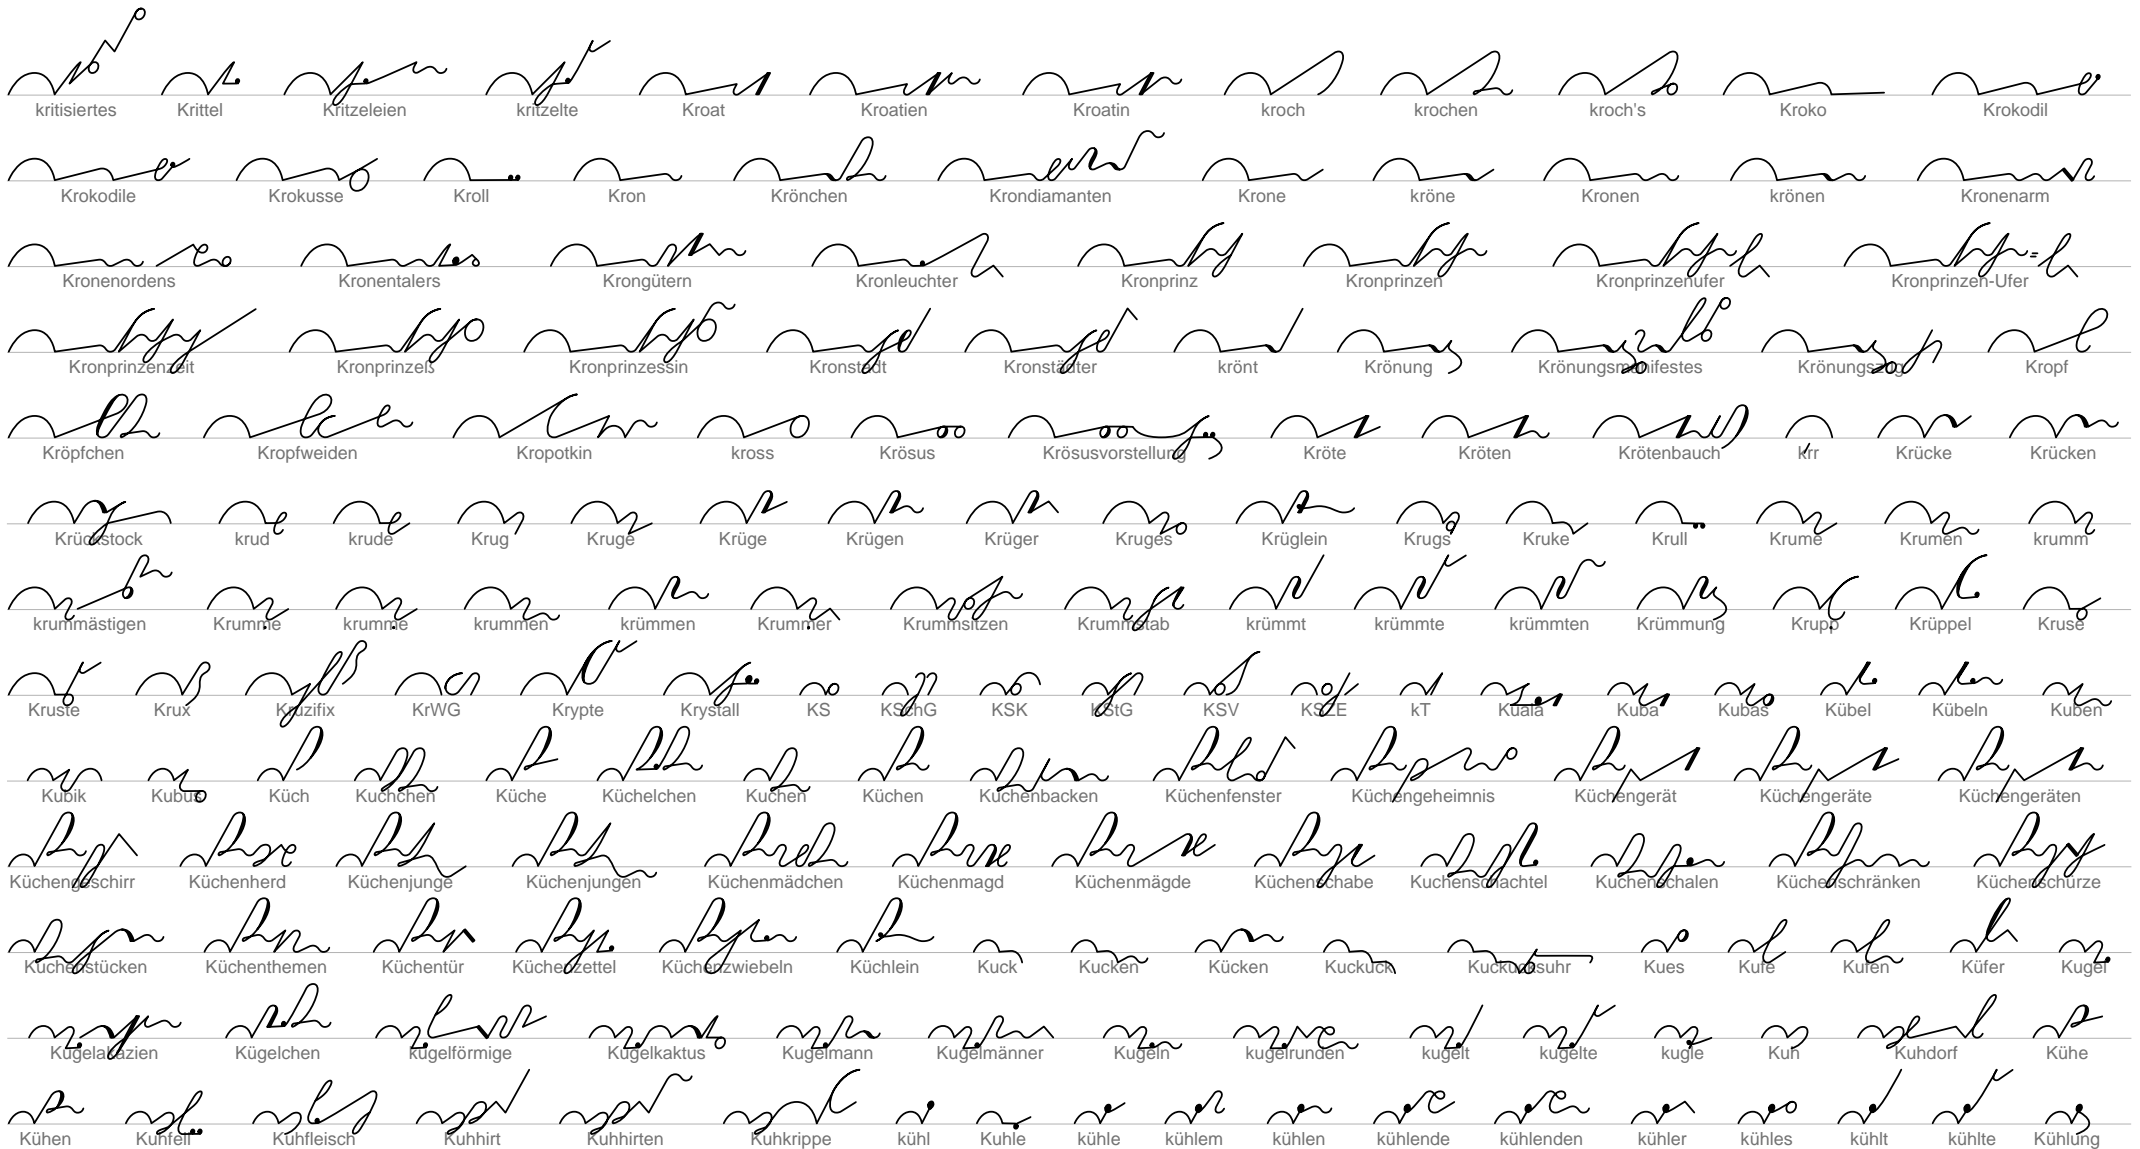 kritisiertes Krittel Kritzeleien kritzelte Kroat Kroatien Kroatin kroch krochen kroch's Kroko Krokodil
Krokodile Krokusse Kroll Kron Krönchen Krondiamanten Krone kröne Kronen krönen Kronenarm
Kronenordens Kronentalers Krongütern Kronleuchter Kronprinz Kronprinzen Kronprinzenufer Kronprinzen-Ufer
Kronprinzenzeit Kronprinzeß Kronprinzessin Kronstadt Kronstädter krönt Krönung Krönungsmanifestes Krönungszug Kropf
Kröpfchen Kropfweiden Kropotkin kross Krösus Krösusvorstellung Kröte Kröten Krötenbauch krr Krücke Krücken
Krückstock krud krude Krug Kruge Krüge Krügen Krüger Kruges Krüglein Krugs Kruke Krull Krume Krumen krumm
krummästigen Krumme krumme krummen krümmen Krummer Krummsitzen Krummstab krümmt krümmte krümmten Krümmung Krupp Krüppel Kruse
Kruste Krux Kruzifix KrWG Krypte Krystall KS KSchG KSK KStG KSV KSZE kT Kuala Kuba Kubas Kübel Kübeln Kuben
Kubik Kubus Küch Kuchchen Küche Küchelchen Kuchen Küchen Kuchenbacken Küchenfenster Küchengeheimnis Küchengerät Küchengeräte Küchengeräten
Küchengeschirr Küchenherd Küchenjunge Küchenjungen Küchenmädchen Küchenmagd Küchenmägde Küchenschabe Kuchenschachtel Kuchenschalen Küchenschränken Küchenschürze
Kuchenstücken Küchenthemen Küchentür Küchenzettel Küchenzwiebeln Küchlein Kuck Kucken Kücken Kuckuck Kuckucksuhr Kues Kufe Kufen Küfer Kugel
Kugelakazien Kügelchen kugelförmige Kugelkaktus Kugelmann Kugelmänner Kugeln kugelrunden kugelt kugelte kugle Kuh Kuhdorf Kühe
Kühen Kuhfell Kuhfleisch Kuhhirt Kuhhirten Kuhkrippe kühl Kuhle kühle kühlem kühlen kühlende kühlenden kühler kühles kühlt kühlte Kühlung